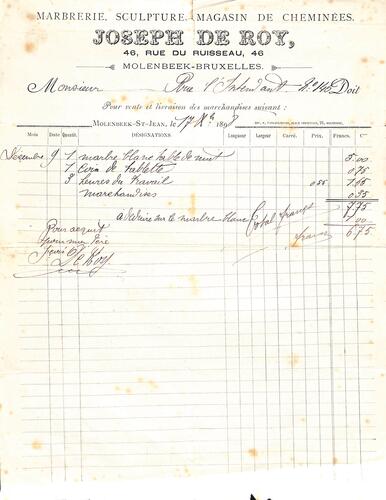 MARBRERIE, SCULPTURE, MAGASIN DE CHEMINÉES.
JOSEPH DE ROY,
46, RUE DU RUISSEAU, 46
MOLENBEEK-BRUXELLES.
Monsieur Rue l'Intendant N° 145 Doit
Pour vente et livraison des marchandises suivant :
MOLENBEEK-ST-JEAN, le 17 Xbre 1898
Mois Date Quantit. DÉSIGNATIONS Longueur Largeur Carré. Prix. Francs. Cmes
Décembre 9 1 marbre blanc table de nuit 5.00
1 Coin de tablette 0.75
3 heures du travail 0.55 1.65
marchandises 0.35
Total francs 7.75
a déduire sur le marbre blanc 1.00
francs 6.75
Pour acquit
pour mon père
De Roy